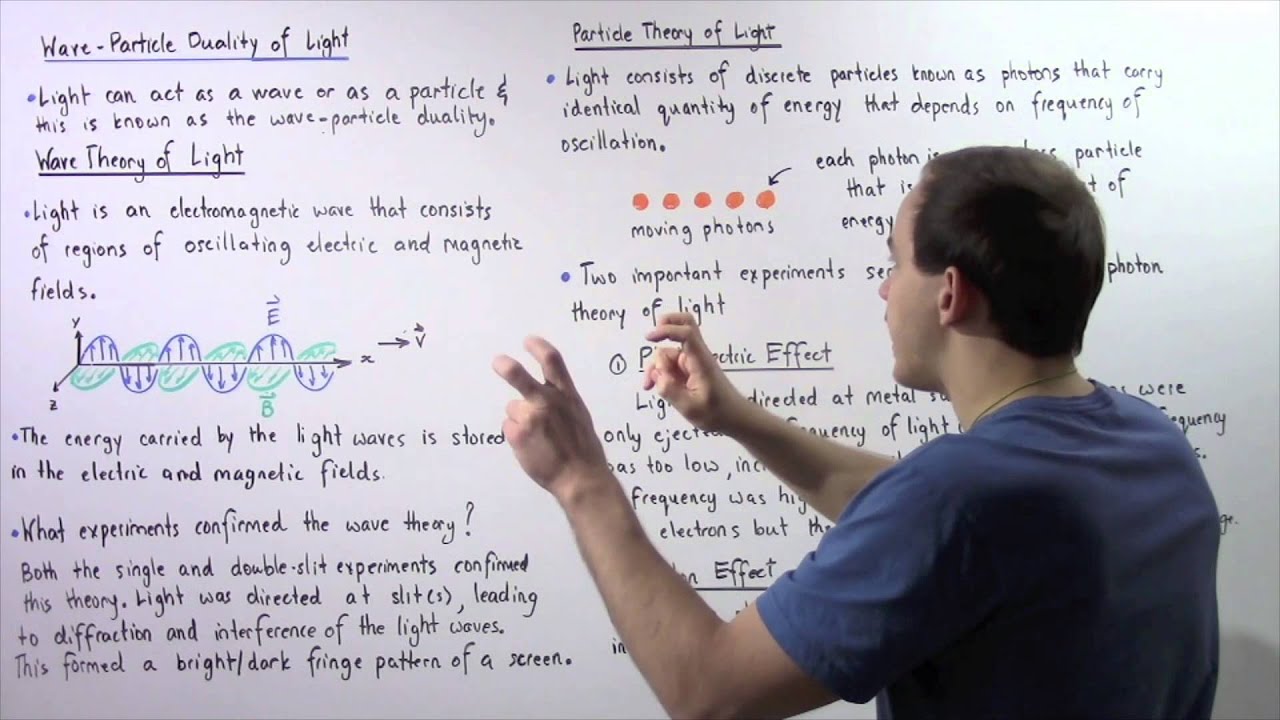 Wave-Particle Duality of Light
•Light can act as a wave or as a particle &
this is known as the wave-particle duality.
Wave Theory of Light
•Light is an electromagnetic wave that consists
of regions of oscillating electric and magnetic
fields.
y
E
x
V
z
B
•The energy carried by the light waves is stored
in the electric and magnetic fields.
•What experiments confirmed the wave theory?
Both the single and double-slit experiments confirmed
this theory. Light was directed at slit(s), leading
to diffraction and interference of the light waves.
This formed a bright/dark fringe pattern of a screen.
Particle Theory of Light
• Light consists of discrete particles known as photons that carry
identical quantity of energy that depends on frequency of
oscillation.
each photon is particle
that is of
energy
moving photons
• Two important experiments photon
theory of light
① Effect
directed at metal were
only ejected frequency of light frequency
too low,
frequency was
electrons but
Effect